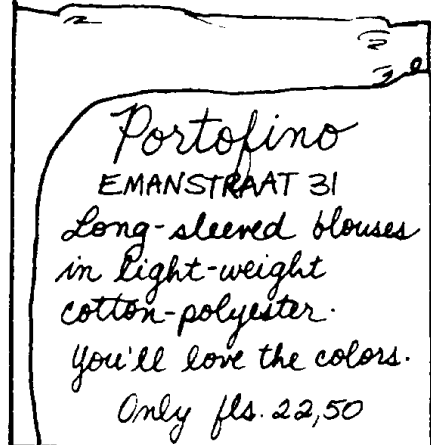 Portofino
EMANSTRAAT 31
Long-sleeved blouses
in light-weight
cotton-polyester.
You'll love the colors.
Only fls. 22,50